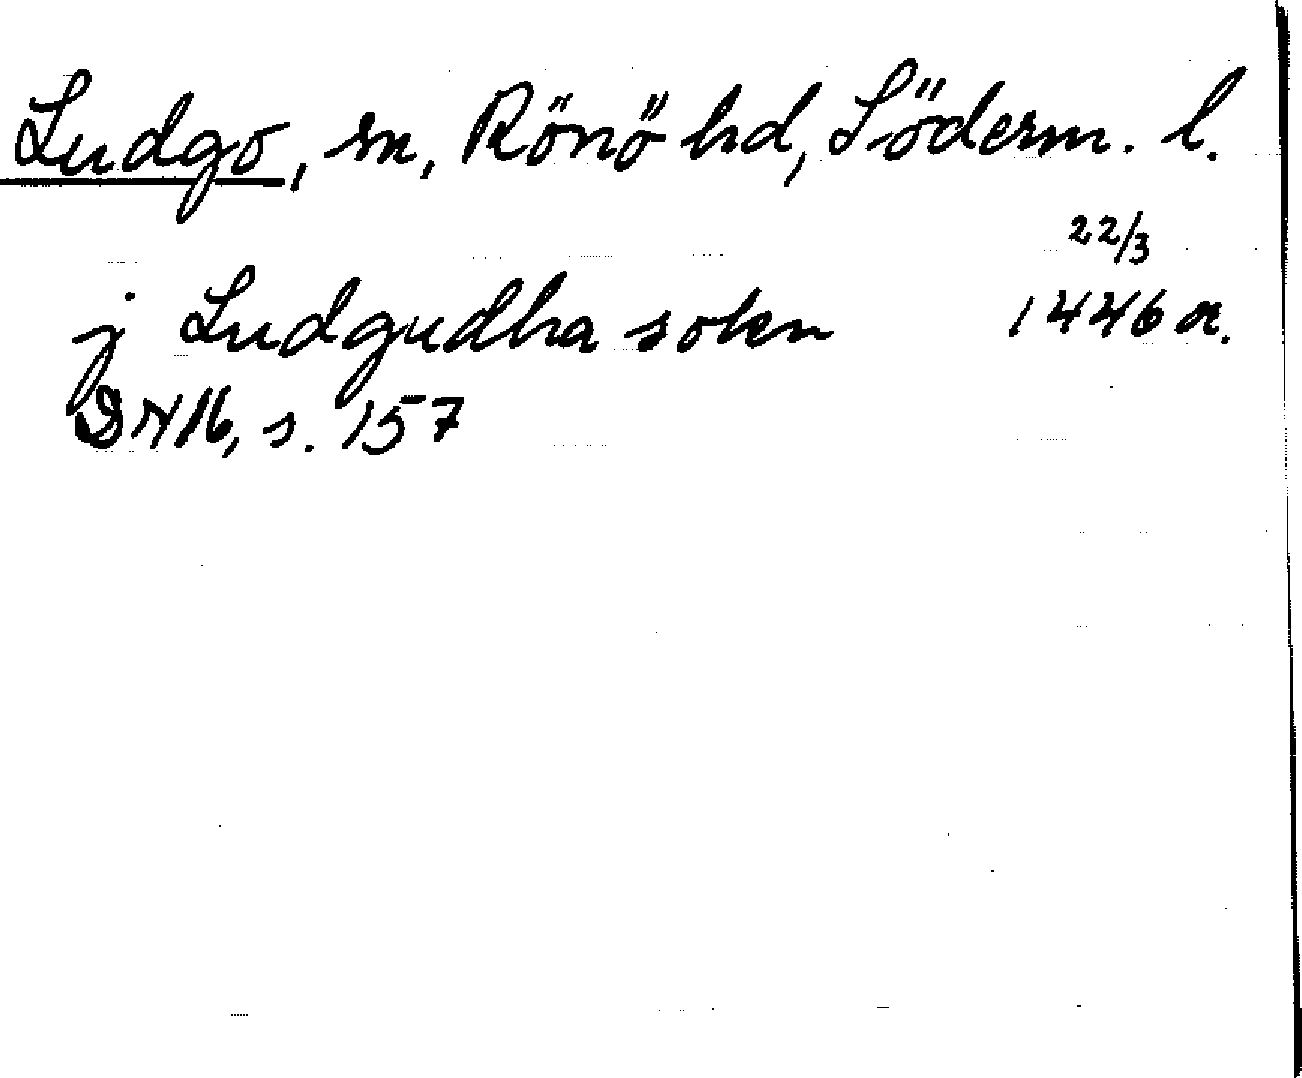 Ludgo, sn, Rönö hd, Söderm. l.
22/3
j Ludgudha sokn 1446 or.
DN 16, s. 157